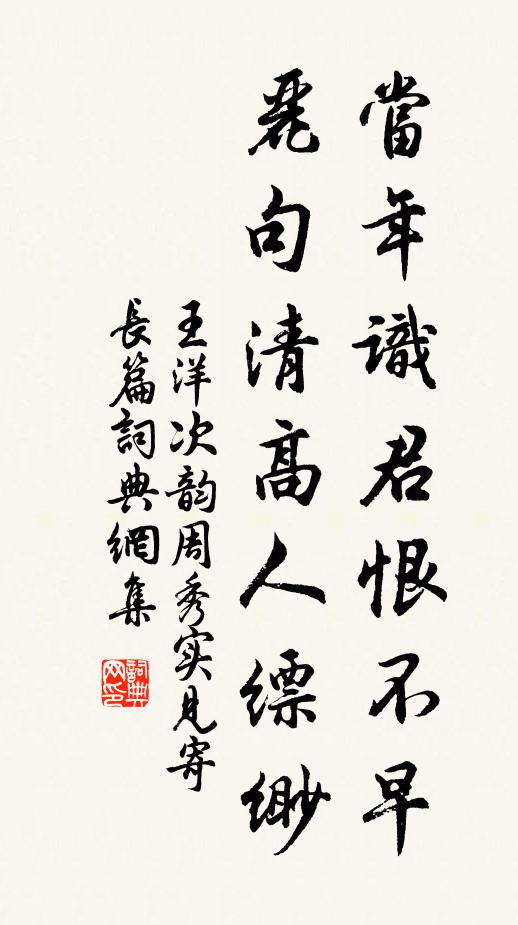 當年識君恨不早
麗句清高人縹緲
王洋次韵周秀实見寄
長篇詞典網集
詞典网印